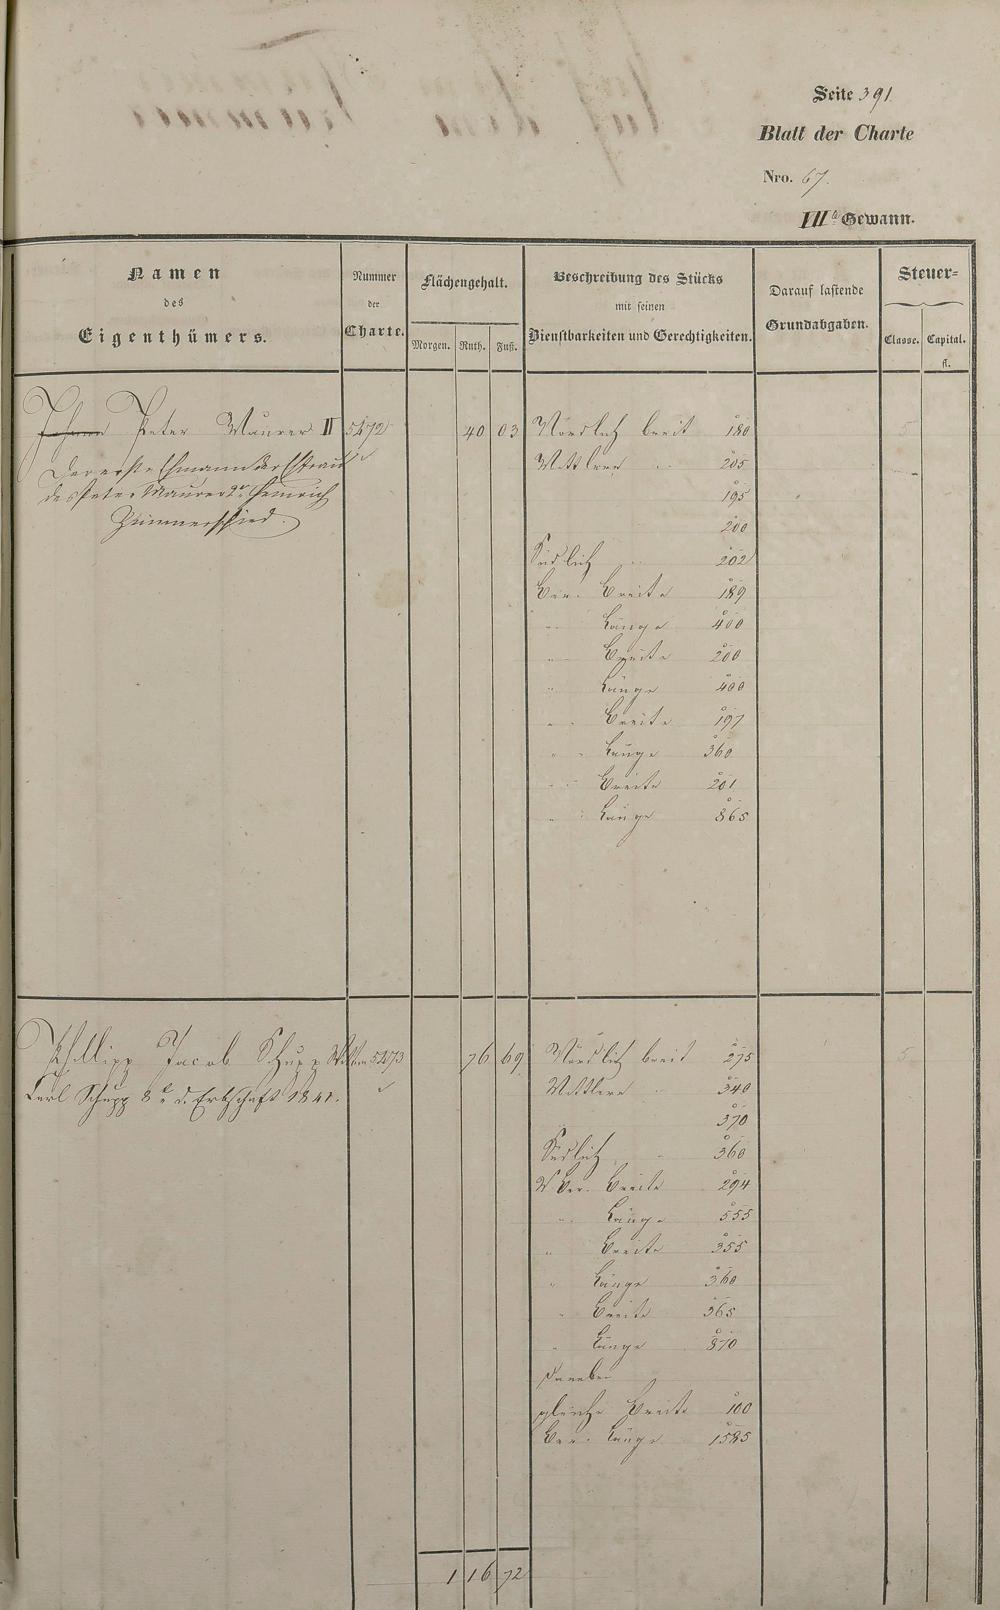 Seite 391.
Blatt der Charte
Nro. 67.
III te Gewann.
Namen
des
Eigenthümers.
Nummer
der
Charte.
Flächengehalt.
Morgen. Ruth. Fuß.
Beschreibung des Stücks
mit seinen
Dienstbarkeiten und Gerechtigkeiten.
Darauf lastende
Grundabgaben.
Steuer-
Classe. Capital.
fl.
Johann Peter Maurer II 5472 40 03 Nördlich breit 180 5
Der erste Ehmann der Frau Mittlere " 205
des Peter Maurer 2r Heinrich 195
Zimmerschied. 200
Südlich " 202
Ver. Breite 189
" Länge 400
" Breite 200
" Länge 400
" Breite 197
" Länge 360
" Breite 201
" Länge 865
Phillipp Jacob Schupp 5473 76 69 Nördlich breit 275 5
Karl Schupp d. Erbschaft 1841. Mittlere " 340
370
Südlich " 360
Ver. Breite 294
" Länge 555
" Breite 355
" Länge 360
" Breite 365
" Länge 870
daneben
gleiche Breite 100
Ver. Länge 1585
1 16 72